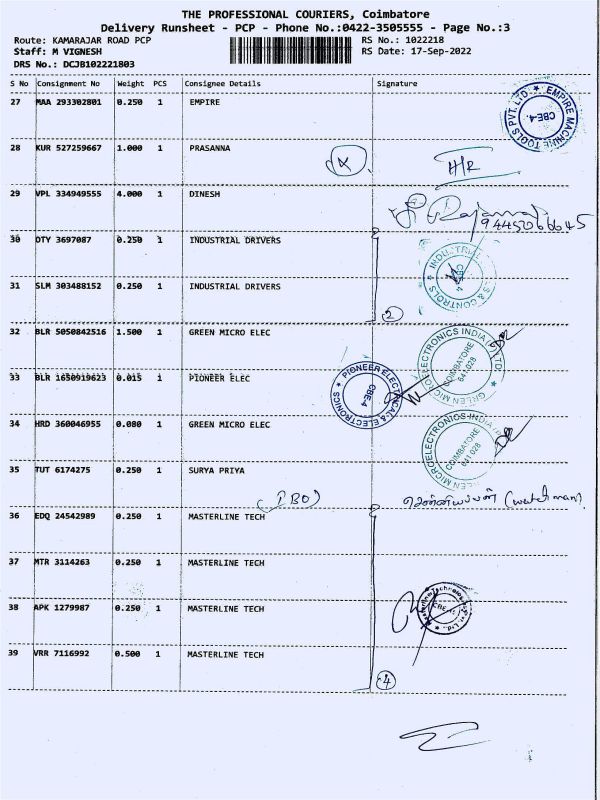 THE PROFESSIONAL COURIERS, Coimbatore
Delivery Runsheet - PCP - Phone No.:0422-3505555 - Page No.:3
Route: KAMARAJAR ROAD PCP RS No.: 1022218
Staff: M VIGNESH RS Date: 17-Sep-2022
DRS No.: DCJB102221803
S No Consignment No Weight PCS Consignee Details Signature
27 MAA 293302801 0.250 1 EMPIRE
EMPIRE MACHINE TOOLS PVT. LTD. CBE-4.
28 KUR 527259667 1.000 1 PRASANNA
H/R
29 VPL 334949555 4.000 1 DINESH
9445066645
30 DTY 3697087 0.250 1 INDUSTRIAL DRIVERS
INDUSTRIAL & CONTROLS CBE 4
31 SLM 303488152 0.250 1 INDUSTRIAL DRIVERS
2
32 BLR 5050842516 1.500 1 GREEN MICRO ELEC
GREEN MICROELECTRONICS INDIA (P) LTD. COIMBATORE 641 028
33 BLR 1650919623 0.015 1 PIONEER ELEC
PIONEER ELECTRICALS & ELECTRONICS CBE-4
34 HRD 360046955 0.080 1 GREEN MICRO ELEC
GREEN MICROELECTRONICS INDIA COIMBATORE 641 028
35 TUT 6174275 0.250 1 SURYA PRIYA
(watchman)
36 EDQ 24542989 0.250 1 MASTERLINE TECH
37 MTR 3114263 0.250 1 MASTERLINE TECH
38 APK 1279987 0.250 1 MASTERLINE TECH
39 VRR 7116992 0.500 1 MASTERLINE TECH
4